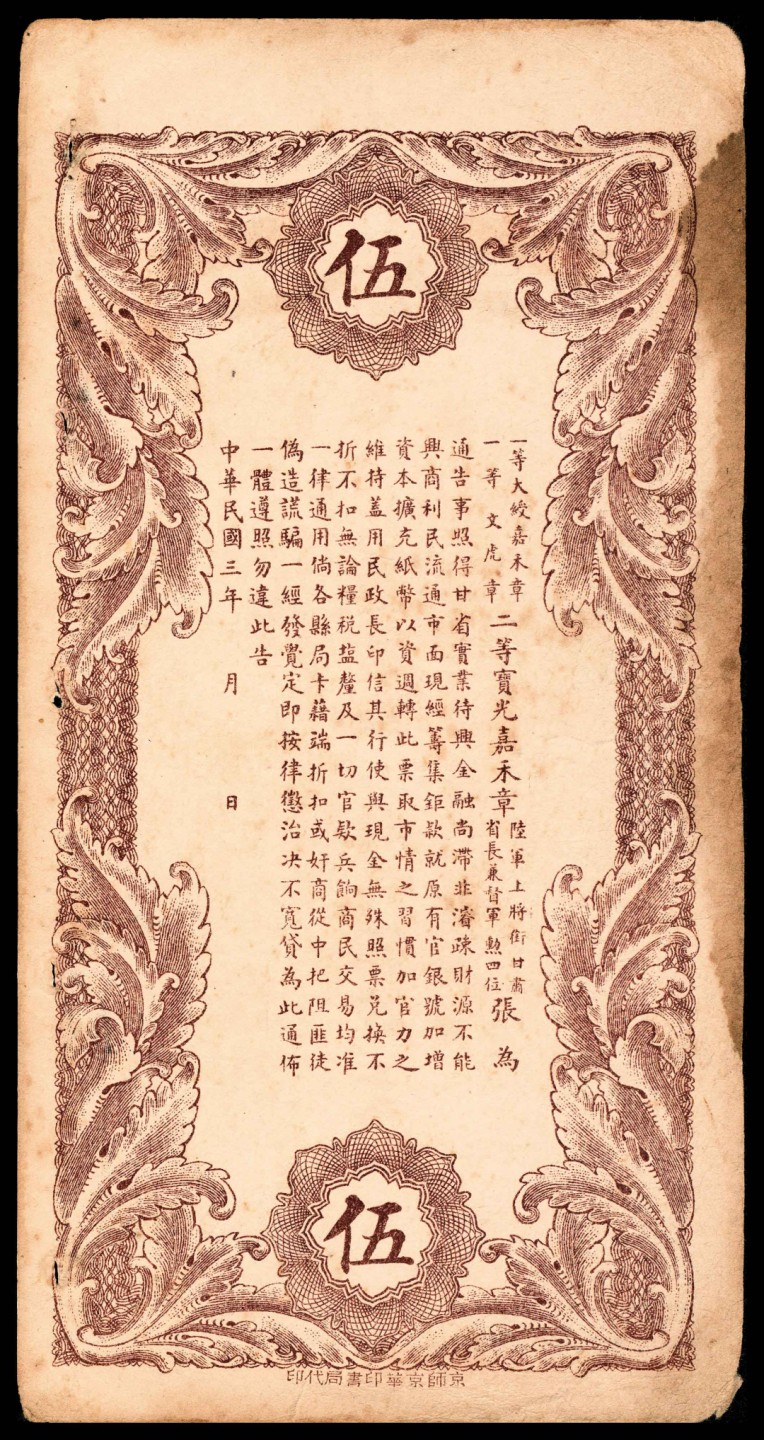 伍
一等大綬嘉禾章
一等文虎章
二等寶光嘉禾章
陸軍上將銜甘肅
省長兼督軍勲四位
張 為
通告事照得甘省實業待興金融尚滯非濬疎財源不能
興商利民流通市面現經籌集鉅款就原有官銀號加增
資本擴充紙幣以資週轉此票取市情之習慣加官力之
維持蓋用民政長印信其行使與現金無殊照票兑換不
折不扣無論糧税盐釐及一切官欵兵餉商民交易均准
一律通用倘各縣局卡藉端折扣或奸商從中把阻匪徒
偽造謊騙一經發覺定即按律懲治决不寬貸為此通佈
一體遵照勿違此告
中華民國三年 月 日
伍
京師京華印書局代印